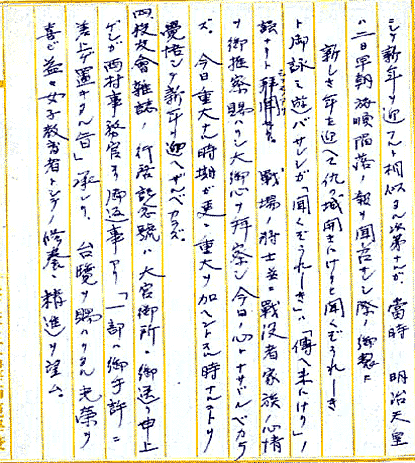 シク新年ヲ迎フルト相似タル次第ナルガ、當時 明治天皇
ハ二日早朝旅順陥落ノ報ヲ聞召サレシ際ノ御製ニ
新しき年を迎へて仇の城開きにけりと聞くぞうれしき
ト御詠ミ遊バサレシガ「聞くぞうれしき」ハ「傳へ来にけり」ノ
ト拝聞スル。戦場ノ将士並ニ戦没者家族ノ心情
ヲ御推察賜ハリシ大御心ヲ拝察シ今日ノ心トナサザルベカラ
ズ。今日重大ナル時期ガ更ニ重大ヲ加ヘントスル時ナルヨリ
覺悟シテ新年ヲ迎ヘザルベカラズ。
四、校友會雜誌ノ行啓記念號ハ大宮御所ニ御送リ申上
ゲシガ西村事務官ヨリ御返事アリ「一部ハ御手許ニ
差上ゲ置キタル旨」承リ、台覽ヲ賜ハリタル光榮ヲ
喜ビ益々女子教育者トシテノ修養ニ精進ヲ望ム。